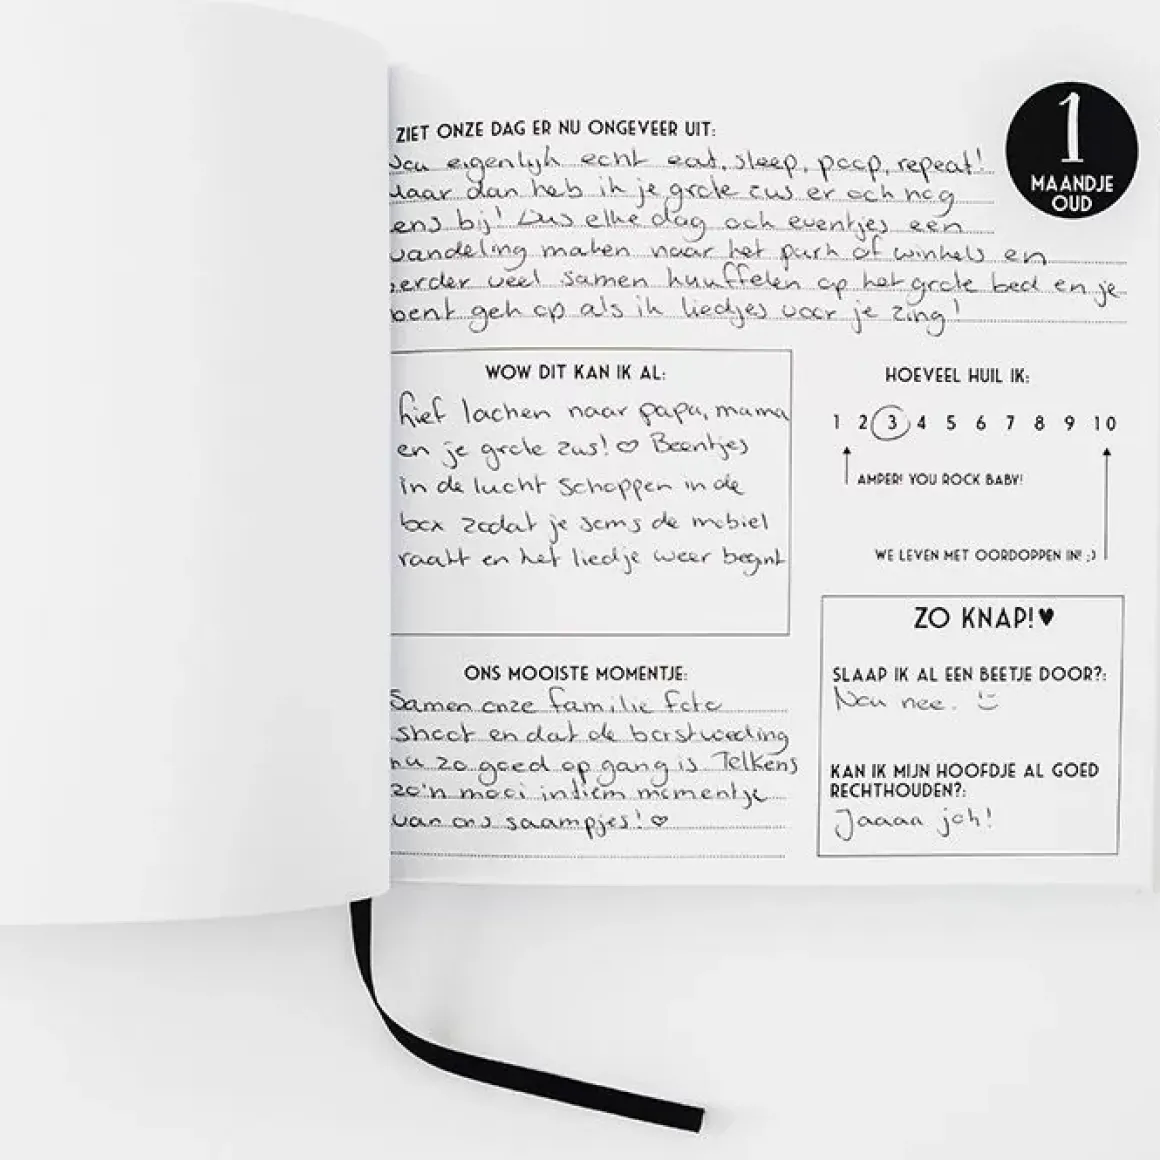 ZIET ONZE DAG ER NU ONGEVEER UIT:
1
MAANDJE
OUD
Nou eigenlijk echt eat, sleep, poop, repeat!
Maar dan heb ik je grote zus er ook nog
ens bij! Dus elke dag ook eventjes een
wandeling maken naar het park of winkels en
verder veel samen knuffelen op het grote bed en je
bent gek op als ik liedjes voor je zing!
WOW DIT KAN IK AL:
Lief lachen naar papa, mama
en je grote zus! ♡ Beentjes
in de lucht schoppen in de
box zodat je soms de mobiel
raakt en het liedje weer begint
HOEVEEL HUIL IK:
1 2 3 4 5 6 7 8 9 10
AMPER! YOU ROCK BABY!
WE LEVEN MET OORDOPPEN IN! ;)
ONS MOOISTE MOMENTJE:
Samen onze familie foto
shoot en dat de borstvoeding
nu zo goed op gang is. Telkens
zo'n mooi intiem momentje
van ons saampjes! ♡
ZO KNAP! ♥
SLAAP IK AL EEN BEETJE DOOR?:
Nou nee. :)
KAN IK MIJN HOOFDJE AL GOED
RECHTHOUDEN?:
Jaaaa joh!